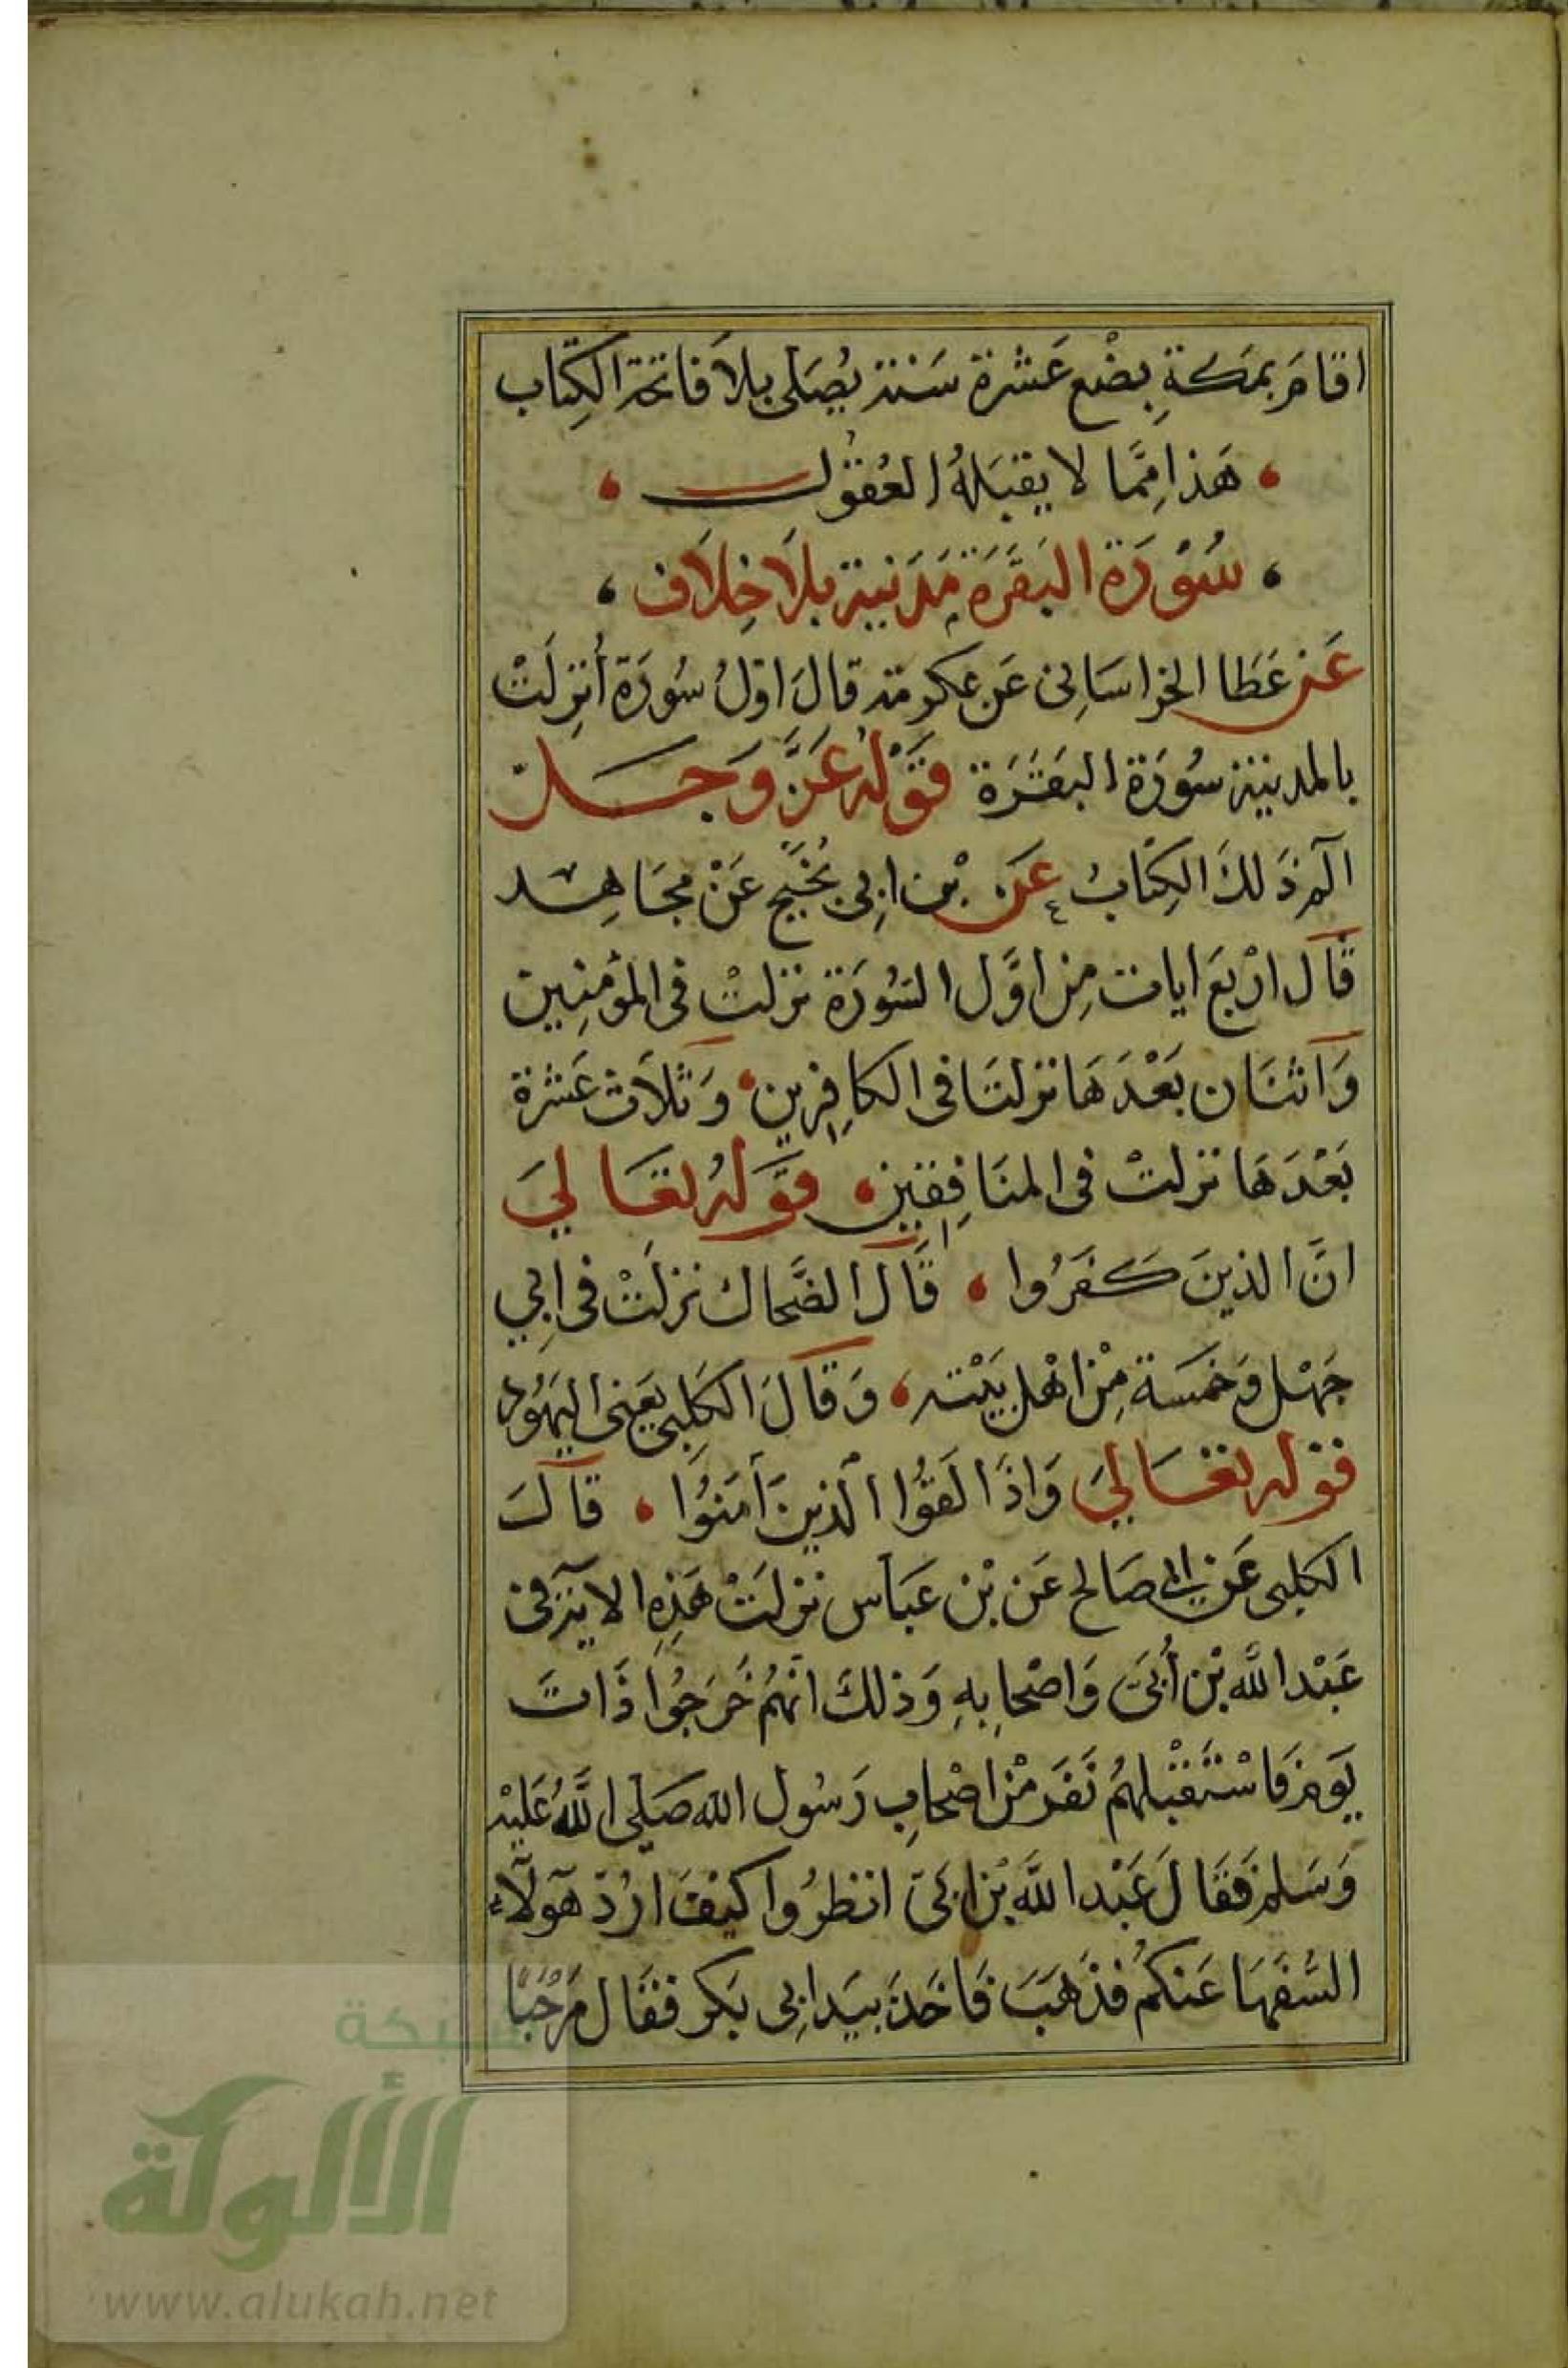 اقامَ بمَكةِ بضْع عَشرة سَنة يُصَلى بلاَ فاتحة الكِتاب
هَذا مِمَّا لا يقبَلهُ العُقوُل
سُوْرَة البَقَرَة مَدَنية بلاَ خِلاَف
عَن عَطَا الخراسَانى عَن عكرمة قالَ اوّلُ سُورَة أنزلَتْ
بالمدينة سُورَة البَقَرَة قوْله عَزَّ وَجَلّ
الٓمٓ ذَلكَ الكِتَابُ عَن بْن ابِى نُجَيح عَنْ مجَاهِد
قَال ارْبعَ ايات مِن اوَّل السُورَة نزلتْ فى المؤمِنِين
وَاثنَان بَعْدَهَا نزلتَا فى الكافِرين وَثلاَث عَشرة
بَعْدَهَا نزلتْ فى المنَافِقين قوَله تعَالىَ
انَّ الذينَ كَفَرُوا قَال الضَّحاك نزلَتْ فى ابِي
جَهْل وَخَمسَة مِنْ اهْل بَيْته وَقالَ الكَلبِى يَعَنى اليَهُود
قوله تعَالىَ وَاذَا لَقوُا الذينَ آمَنوُا قال
الكلبى عَن ابى صَالح عَن بْن عَبَاس نزلَتْ هَذِه الاية فى
عَبْد الله بْن أُبَىّ وَاصْحابِهِ وَذلكَ انّهُم خَرَجُوا ذَاتَ
يَوم فَاسْتَقْبلهُم نَفَر مْن اصْحابِ رَسُول الله صَلىَ اللهُ عَليْه
وَسَلم فَقَالَ عَبْد اللهَ بْن ابىّ انظرُوا كيْفَ ارُدّ هَٓولآء
السُفَهَا عَنكمُ فذَهَبَ فَاخَذ بيَد ابِى بَكر فقَال مَرْحَبًا
شبكة
الألوكة
www.alukah.net